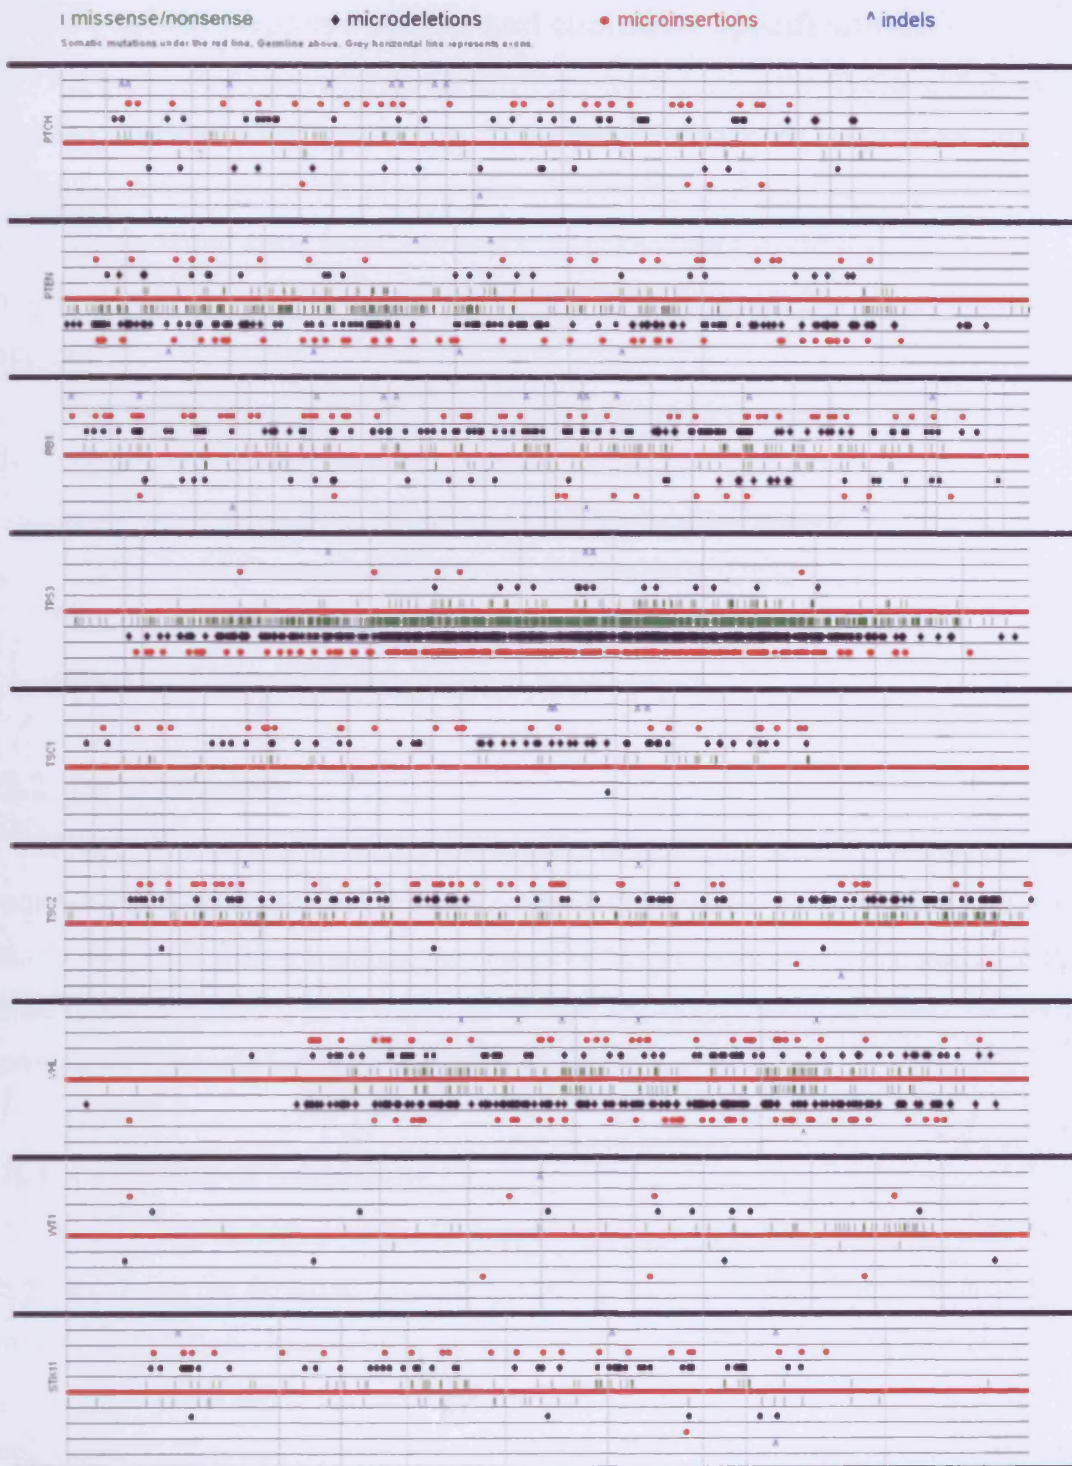 missense/nonsense ♦ microdeletions ● microinsertions ^ indels
Somatic mutations under the red line, Germline above. Grey horizontal line represents exons.
PTCH
PTEN
RB1
TP53
TSC1
TSC2
VHL
WT1
STK11